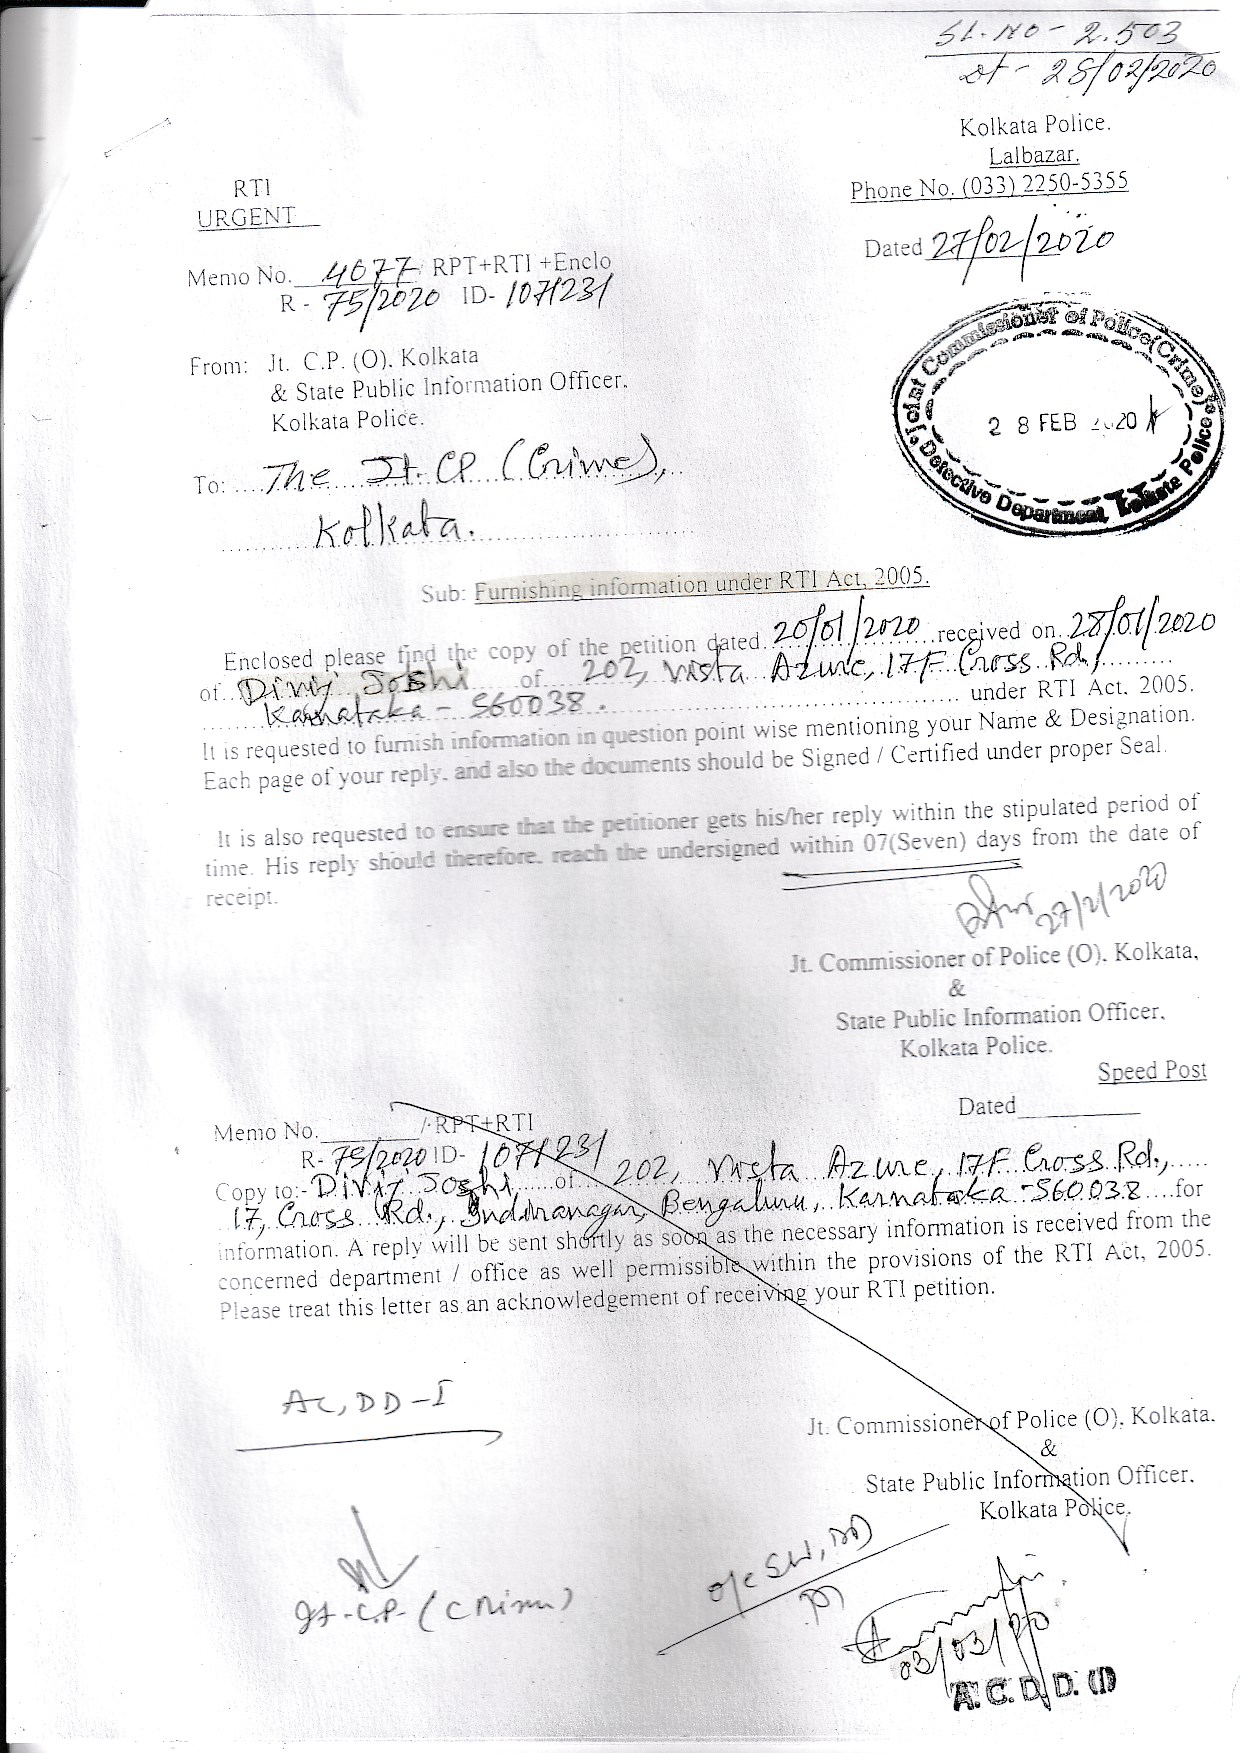 SL. NO - 2.503
Dt - 28/02/2020
Kolkata Police.
Lalbazar.
Phone No. (033) 2250-5355
RTI
URGENT
Dated 27/02/2020
Memo No. 4077 RPT+RTI +Enclo
R - 75/2020 ID- 1071231
Joint Commissioner of Police(Crime)
28 FEB 2020
Detective Department, Kolkata Police
From: Jt. C.P. (O). Kolkata
& State Public Information Officer.
Kolkata Police.
To: The Jt. CP (Crime),
Kolkata.
Sub: Furnishing information under RTI Act, 2005.
Enclosed please find the copy of the petition dated 20/01/2020 received on 28/01/2020
of Divij Joshi of 202, Vista Azure, 17F Cross Rd,
Karnataka - 560038. under RTI Act. 2005.
It is requested to furnish information in question point wise mentioning your Name & Designation.
Each page of your reply. and also the documents should be Signed / Certified under proper Seal.
It is also requested to ensure that the petitioner gets his/her reply within the stipulated period of
time. His reply should therefore. reach the undersigned within 07(Seven) days from the date of
receipt.
27/2/2020
Jt. Commissioner of Police (O). Kolkata,
&
State Public Information Officer.
Kolkata Police.
Speed Post
Dated
Memo No. / RPT+RTI
R- 75/2020 ID- 1071231
Copy to:- Divij Joshi of 202, Vista Azure, 17F Cross Rd.,
17, Cross Rd., Indiranagar, Bengaluru, Karnataka -560038 for
information. A reply will be sent shortly as soon as the necessary information is received from the
concerned department / office as well permissible within the provisions of the RTI Act, 2005.
Please treat this letter as an acknowledgement of receiving your RTI petition.
AC, DD-I
Jt. Commissioner of Police (O). Kolkata.
&
State Public Information Officer.
Kolkata Police.
Jt-C.P- (Crime)
O/c SW, DD
03/03/20
A.C.D.D. (I)